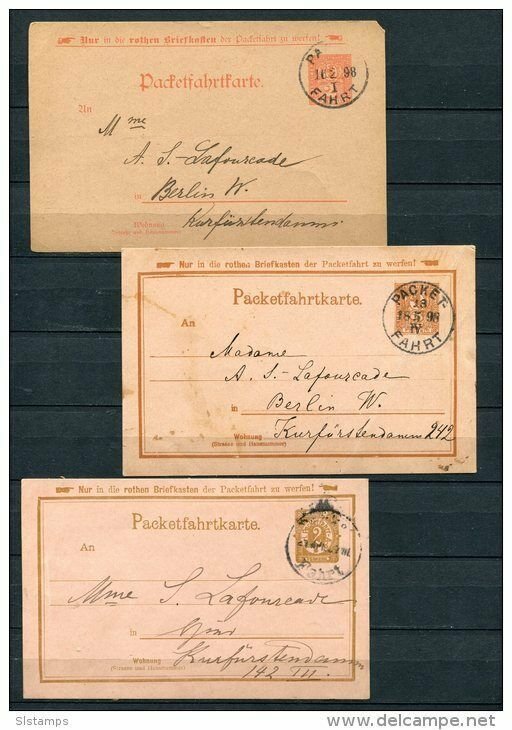 Nur in die rothen Briefkasten der Packetfahrt zu werfen!
Packetfahrtkarte.
PA
10.2 98
I
FAHRT
An
Mme
A. S.- Lafourcade
in Berlin W.
Wohnung Kurfürstendamm
(Strasse und Hausnummer)
Nur in die rothen Briefkasten der Packetfahrt zu werfen!
Packetfahrtkarte.
PACKET-
18
18.5 98
IV
FAHRT
An
Madame
A. S.- Lafourcade
in Berlin W.
Wohnung Kurfürstendamm 242
(Strasse und Hausnummer)
Nur in die rothen Briefkasten der Packetfahrt zu werfen!
Packetfahrtkarte.
2
An
Mme S. Lafourcade
in
Wohnung Kurfürstendamm
(Strasse und Hausnummer)
142 III.
Slstamps
delcampe.net